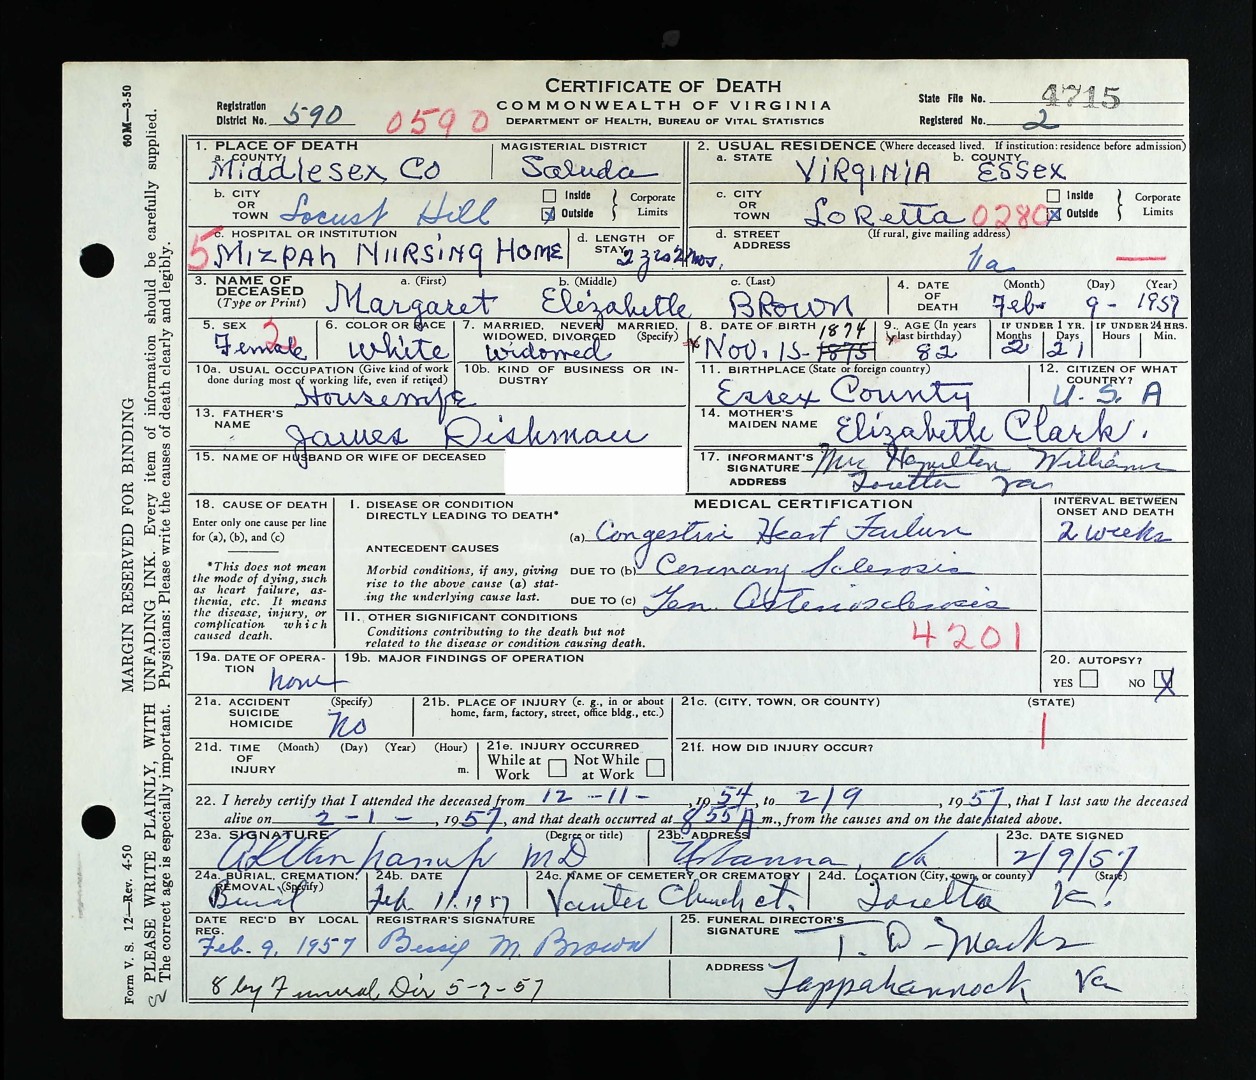 CERTIFICATE OF DEATH
COMMONWEALTH OF VIRGINIA
DEPARTMENT OF HEALTH, BUREAU OF VITAL STATISTICS
Registration District No. 590 0590
State File No. 4715
Registered No. 2
1. PLACE OF DEATH
a. COUNTY Middlesex Co
MAGISTERIAL DISTRICT Saluda
2. USUAL RESIDENCE (Where deceased lived. If institution: residence before admission)
a. STATE VIRGINIA b. COUNTY ESSEX
b. CITY OR TOWN Locust Hill
Inside
Outside
Corporate Limits
c. CITY OR TOWN LoRetta 0280
Inside
Outside
Corporate Limits
5
c. HOSPITAL OR INSTITUTION MIZPAH NURSING HOME
d. LENGTH OF STAY 2 yrs 2 mos.
d. STREET ADDRESS (If rural, give mailing address)
Va
3. NAME OF DECEASED (Type or Print)
a. (First) Margaret
b. (Middle) Elizabethe
c. (Last) BROWN
4. DATE OF DEATH (Month) (Day) (Year)
Feb 9 - 1957
5. SEX Female 2
6. COLOR OR RACE White
7. MARRIED, NEVER MARRIED, WIDOWED, DIVORCED (Specify) Widowed
8. DATE OF BIRTH Nov. 15 - 1875 1874
9. AGE (In years last birthday) 82
IF UNDER 1 YR. Months 2 Days 21
IF UNDER 24 HRS. Hours Min.
10a. USUAL OCCUPATION (Give kind of work done during most of working life, even if retired)
Housewife
10b. KIND OF BUSINESS OR INDUSTRY
11. BIRTHPLACE (State or foreign country)
Essex County
12. CITIZEN OF WHAT COUNTRY?
U. S. A
13. FATHER'S NAME James Dishman
14. MOTHER'S MAIDEN NAME Elizabethe Clark.
15. NAME OF HUSBAND OR WIFE OF DECEASED
17. INFORMANT'S SIGNATURE Mrs Hamilton Williams
ADDRESS Loretta Va
18. CAUSE OF DEATH
Enter only one cause per line for (a), (b), and (c)
*This does not mean the mode of dying, such as heart failure, asthenia, etc. It means the disease, injury, or complication which caused death.
MEDICAL CERTIFICATION
INTERVAL BETWEEN ONSET AND DEATH
I. DISEASE OR CONDITION DIRECTLY LEADING TO DEATH*
(a) Congestive Heart Failure
2 weeks
ANTECEDENT CAUSES
Morbid conditions, if any, giving rise to the above cause (a) stating the underlying cause last.
DUE TO (b) Coronary Sclerosis
DUE TO (c) Gen. Arteriosclerosis
II. OTHER SIGNIFICANT CONDITIONS
Conditions contributing to the death but not related to the disease or condition causing death.
4201
19a. DATE OF OPERATION none
19b. MAJOR FINDINGS OF OPERATION
20. AUTOPSY?
YES NO X
21a. ACCIDENT SUICIDE HOMICIDE (Specify) No
21b. PLACE OF INJURY (e. g., in or about home, farm, factory, street, office bldg., etc.)
21c. (CITY, TOWN, OR COUNTY) (STATE)
21d. TIME OF INJURY (Month) (Day) (Year) (Hour) m.
21e. INJURY OCCURRED
While at Work Not While at Work
21f. HOW DID INJURY OCCUR?
22. I hereby certify that I attended the deceased from 12 - 11 -, 1954, to 2/9, 1957, that I last saw the deceased
alive on 2 - 1 -, 1957, and that death occurred at 8 55 A m., from the causes and on the date stated above.
23a. SIGNATURE (Degree or title) MD
23b. ADDRESS Urbanna, Va
23c. DATE SIGNED 2/9/57
24a. BURIAL, CREMATION, REMOVAL (Specify) Burial
24b. DATE Feb. 11, 1957
24c. NAME OF CEMETERY OR CREMATORY
24d. LOCATION (City, town, or county) (State)
Loretta Va.
DATE REC'D BY LOCAL REG. Feb. 9, 1957
REGISTRAR'S SIGNATURE Bessie M. Brown
25. FUNERAL DIRECTOR'S SIGNATURE T. D. Marks
ADDRESS Tappahannock Va
8 by Funeral Dir 5-7-57
60M—3-50
Form V. S. 12—Rev. 4-50
MARGIN RESERVED FOR BINDING
PLEASE WRITE PLAINLY, WITH UNFADING INK. Every item of information should be carefully supplied.
The correct age is especially important. Physicians: Please write the causes of death clearly and legibly.